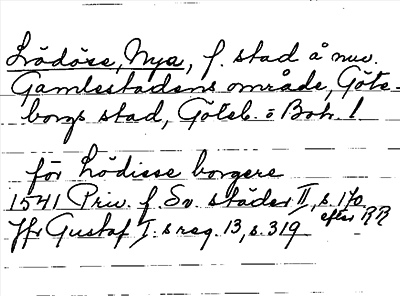 Lödöse, Nya, f. stad å nuv.
Gamlestadens område, Göte-
borgs stad, Göteb. o Boh. l.
för Lödisse borgere
1541 Priv. f. Sv. städer II, s. 170
efter RR
Jfr Gustaf I:s reg. 13, s. 319